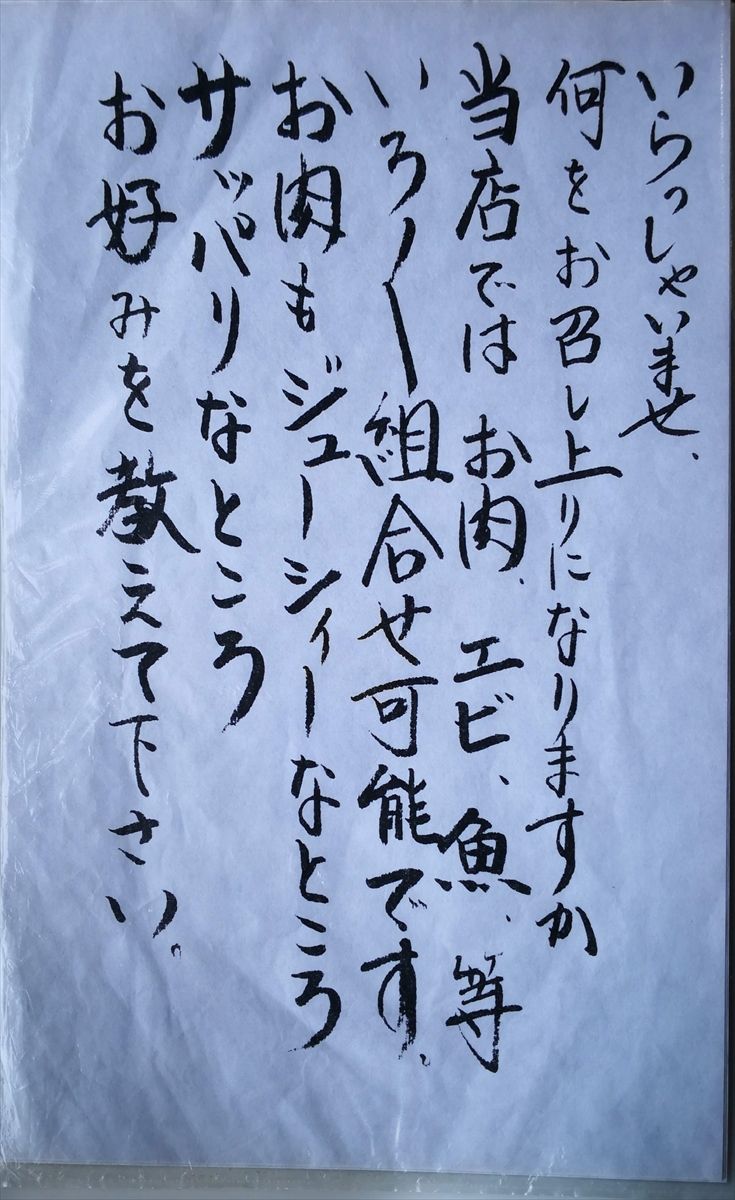 いらっしゃいませ、
何をお召し上りになりますか
当店ではお肉、エビ、魚、等
いろ〳〵組合せ可能です。
お肉もジューシィーなところ
サッパリなところ
お好みを教えて下さい。